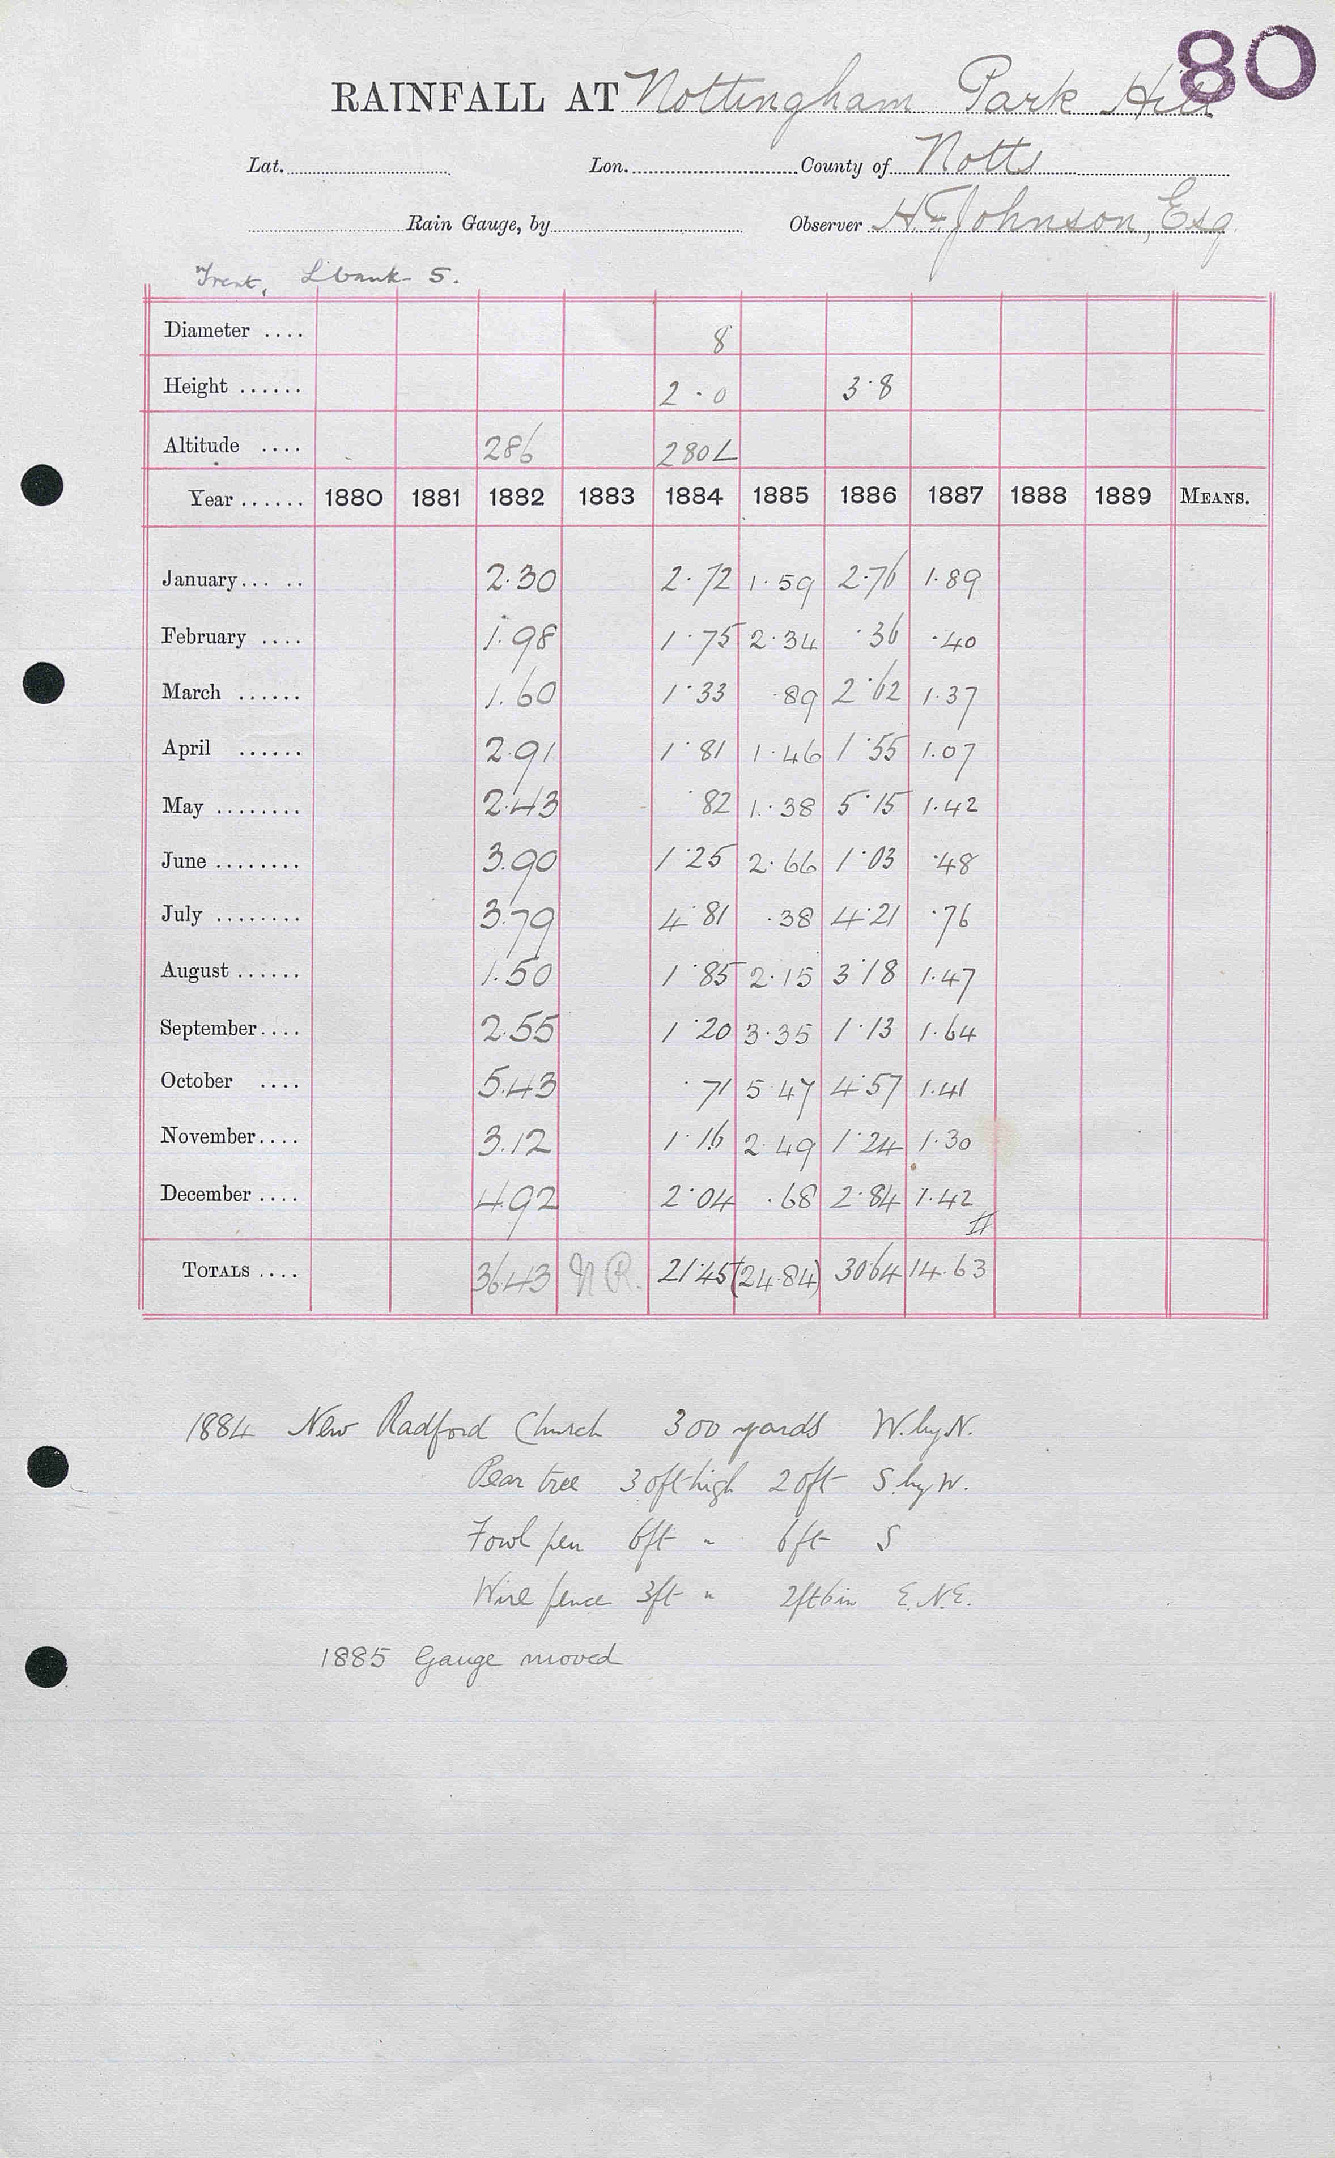 80
RAINFALL AT Nottingham Park Hill
Lat. Lon. County of Notts
Rain Gauge, by Observer H. F. Johnson, Esq
Trent, L bank 5.
Diameter .... 8
Height ...... 2.0 3.8
Altitude .... 286 280L
Year ...... 1880 1881 1882 1883 1884 1885 1886 1887 1888 1889 MEANS.
January... .. 2.30 2.72 1.59 2.76 1.89
February .... 1.98 1.75 2.34 .36 .40
March ...... 1.60 1.33 .89 2.62 1.37
April ...... 2.91 1.81 1.46 1.55 1.07
May ........ 2.43 .82 1.38 5.15 1.42
June ........ 3.90 1.25 2.66 1.03 .48
July ........ 3.79 4.81 .38 4.21 .76
August ...... 1.50 1.85 2.15 3.18 1.47
September.... 2.55 1.20 3.35 1.13 1.64
October .... 5.43 .71 5.47 4.57 1.41
November.... 3.12 1.16 2.49 1.24 1.30
December .... 4.92 2.04 .68 2.84 1.42
TOTALS .... 36.43 N.R. 21.45 (24.84) 30.64 14.63
1884 New Radford Church 300 yards W. by N.
Pear tree 30ft high 20ft S. by W.
Fowl pen 6ft " 6ft S
Wire fence 3ft " 2ft 6in E.N.E.
1885 Gauge moved